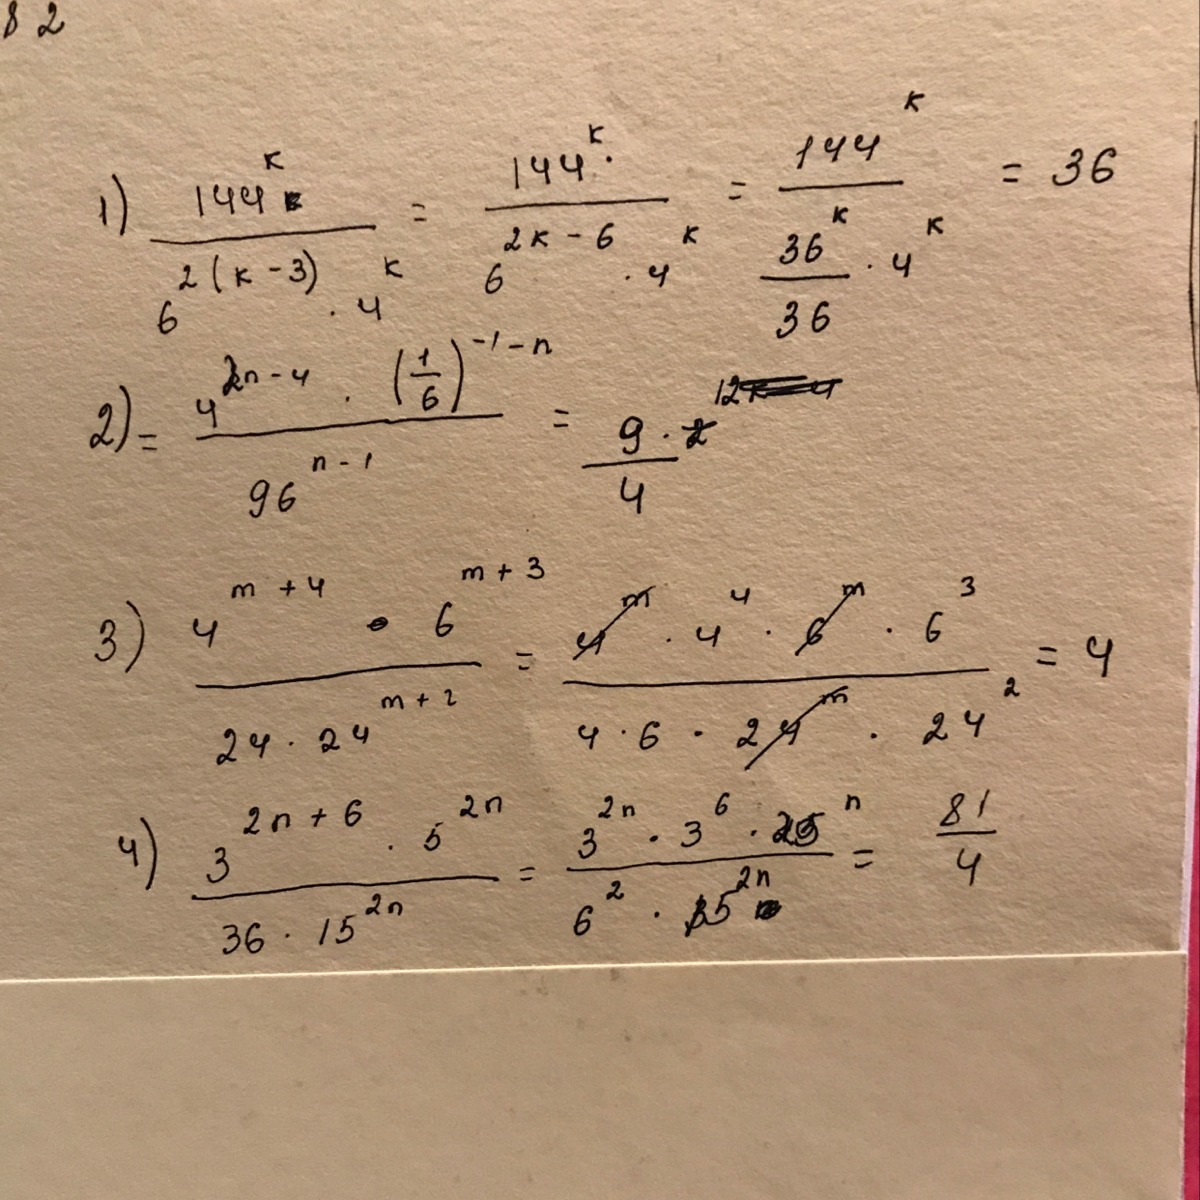 82
1) 144^k / (6^(2(k-3)) · 4^k) = 144^k · / (6^(2k-6) · 4^k) = 144^k / ((36^k / 36) · 4^k) = 36
2) = (4^(2n-4) · (1/6)^(-1-n)) / 96^(n-1) = (9 · 2^12) / 4
3) (4^(m+4) · 6^(m+3)) / (24 · 24^(m+2)) = (4^m · 4^4 · 6^m · 6^3) / (4 · 6 · 24^m · 24^2) = 4
4) (3^(2n+6) · 5^(2n)) / (36 · 15^(2n)) = (3^(2n) · 3^6 · 25^n) / (6^2 · 15^(2n)) = 81/4